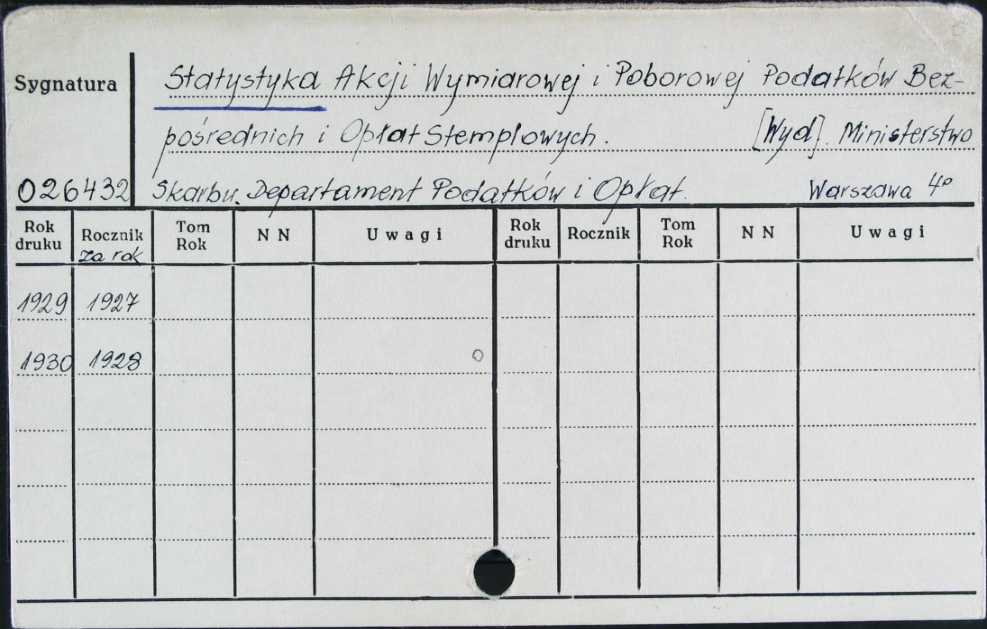 Sygnatura Statystyka Akcji Wymiarowej i Poborowej Podatków Bez-
pośrednich i Opłat Stemplowych. [Wyd]. Ministerstwo
026432 Skarbu. Departament Podatków i Opłat. Warszawa 4°
Rok druku Rocznik za rok Tom Rok NN Uwagi Rok druku Rocznik Tom Rok NN Uwagi
1929 1927
1930 1928